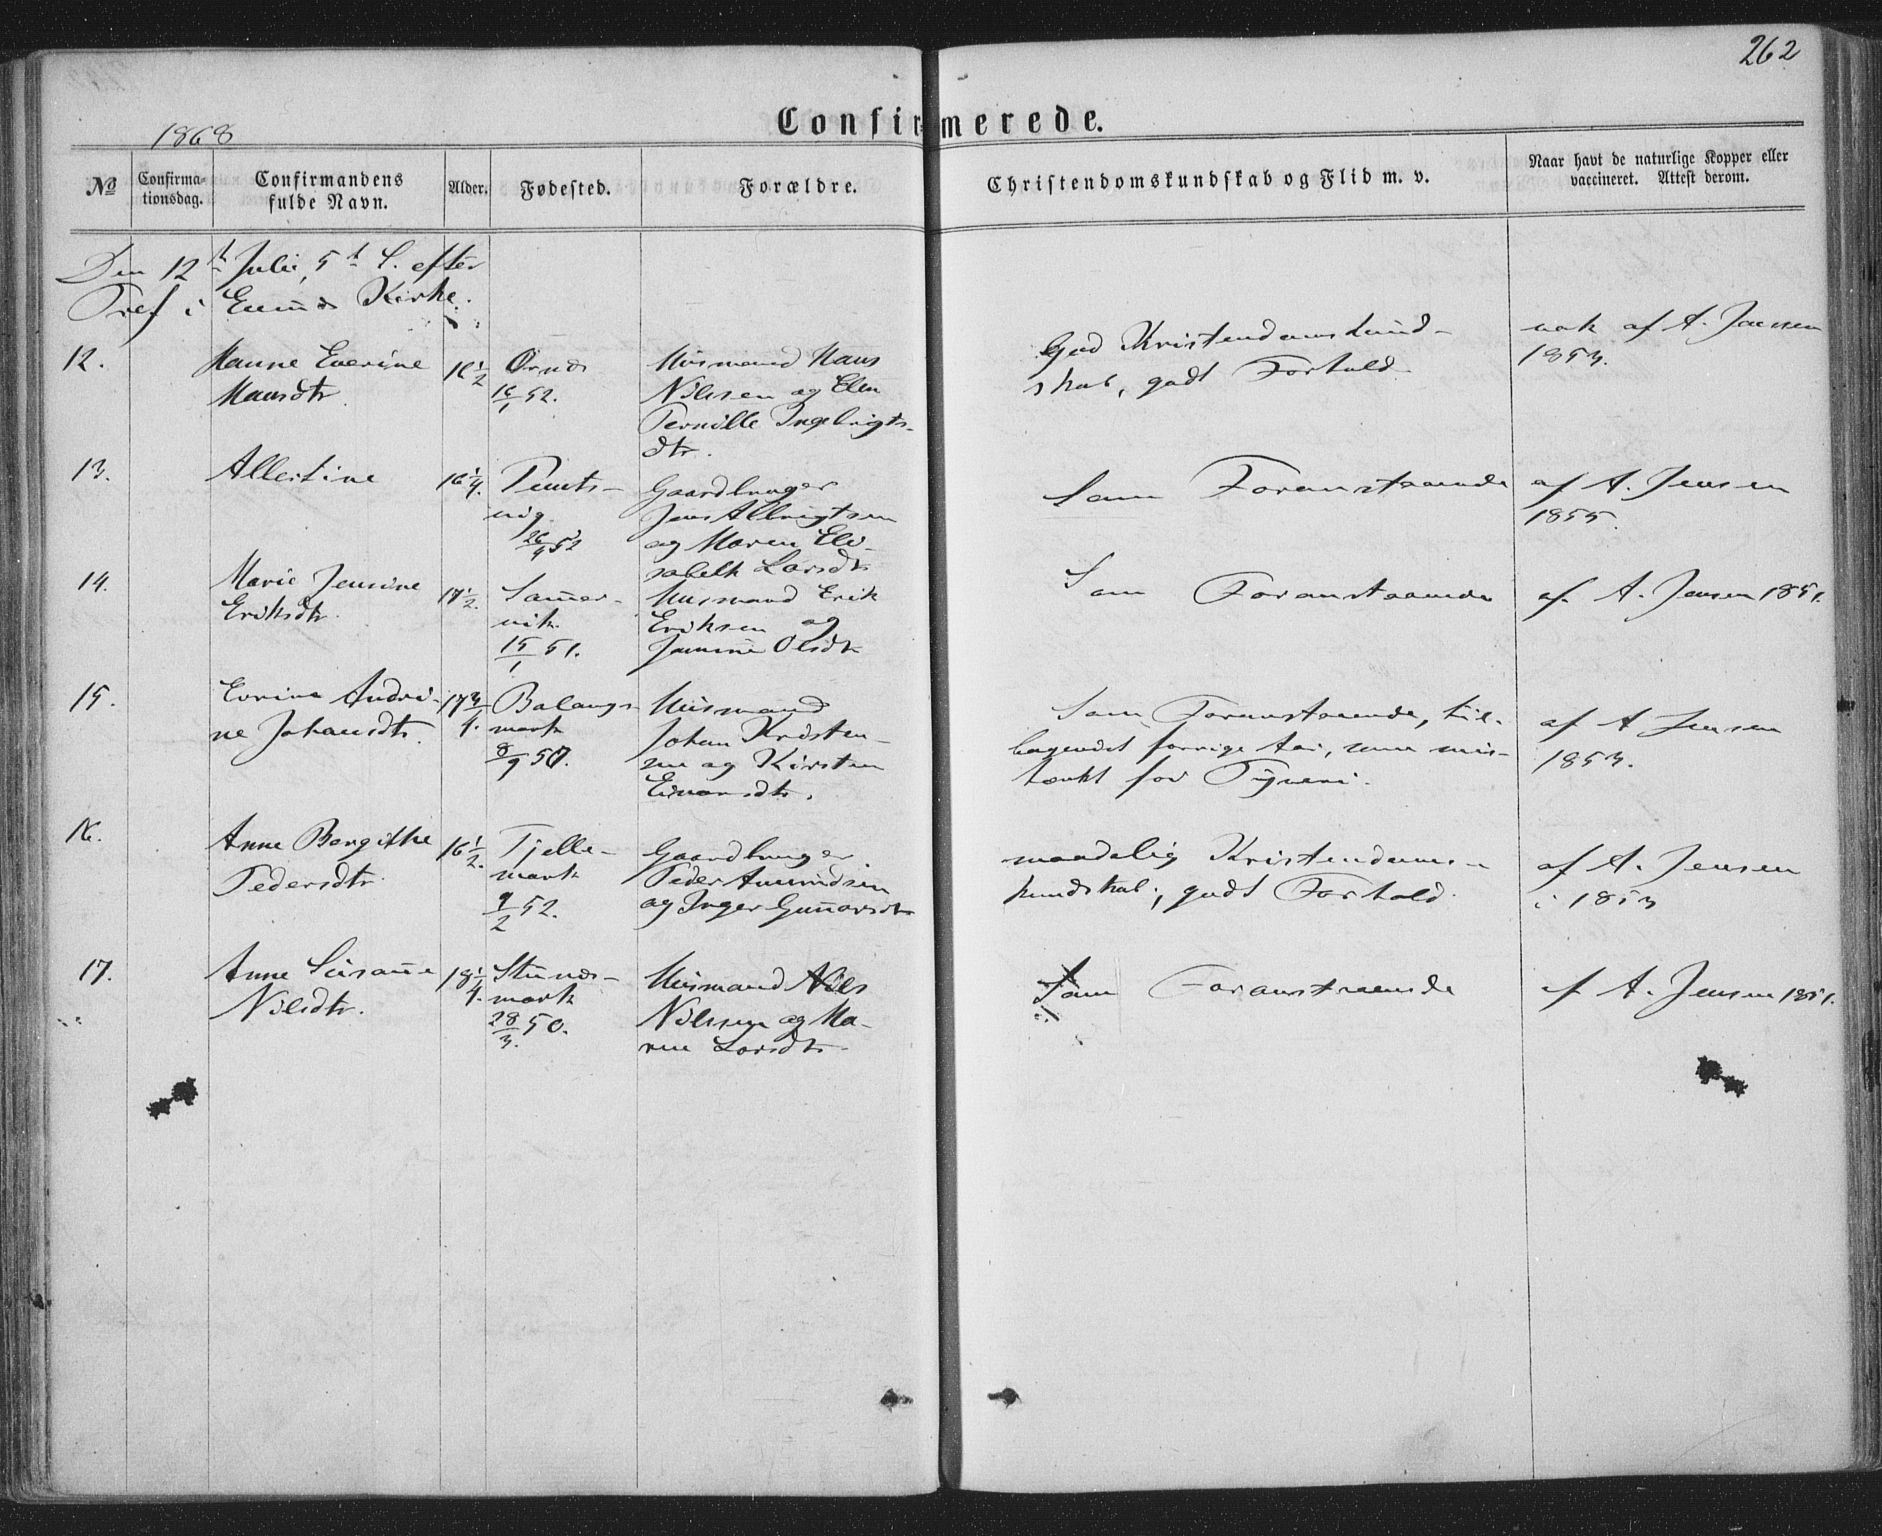 262
1868
Confirmerede.
No
Confirma-
tionsdag.
Confirmandens
fulde Navn.
Alder.
Fødested.
Forældre.
Christendomskundskab og Flid m. v.
Naar havt de naturlige Kopper eller
vaccineret. Attest derom.
Den 12t Juli, 5t S. efter
Tref i Kirke.
12.
Hanne Everine
Hansdtr.
16 1/2
Ørnes
16/1 52.
Husmand Hans
Nilssen og Elen
Pernille Ingebrigts-
dtr.
God Kristendomskund-
skab, godt Forhold.
vak af A. Jenssen
1853.
13.
Albertine
16 1/4.
26/4 52
Gaardbruger
Jens Albrigtsen
og Maren Eli-
sabeth Larsdtr
Som Foranstaaende
af A. Jensen
1855.
14.
Marie Jensine
Eriksdtr.
17 1/2.
vik.
15/1 51.
Husmand Erik
Eriksen og
Olsdtr
Som Foranstaaende
af A. Jensen 1851.
15.
Evrine Andri-
ne Johansdtr.
17 3/4.
Balangs-
mark
8/9 50.
Husmand
Johan Kristen-
sen og Kirsten
Eivarsdtr.
Som Foranstaaende, til-
bagevist forrige Aar, som mis-
tænkt for Tyveri.
af A Jensen
1853.
16.
Anne Bergithe
Pedersdtr.
16 1/2.
Tjelle-
mark
9/2 52.
Gaardbruger
Peder Amundsen
og Inger Gunarsdtr
maadelig Kristendoms-
kundskab, godt Forhold.
af A. Jensen
i 1853
17.
Anne Susanne
Nilsdtr.
18 1/4.
mark
28/3. 50.
Husmand Nils
Nilssen og Ma-
ren Larsdtr.
Som Foranstaaende
af A. Jensen 1851.